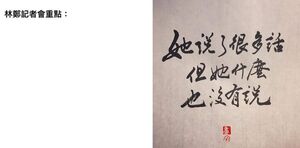 林鄭記者會重點：
她说了很多話
但她什麼
也沒有説